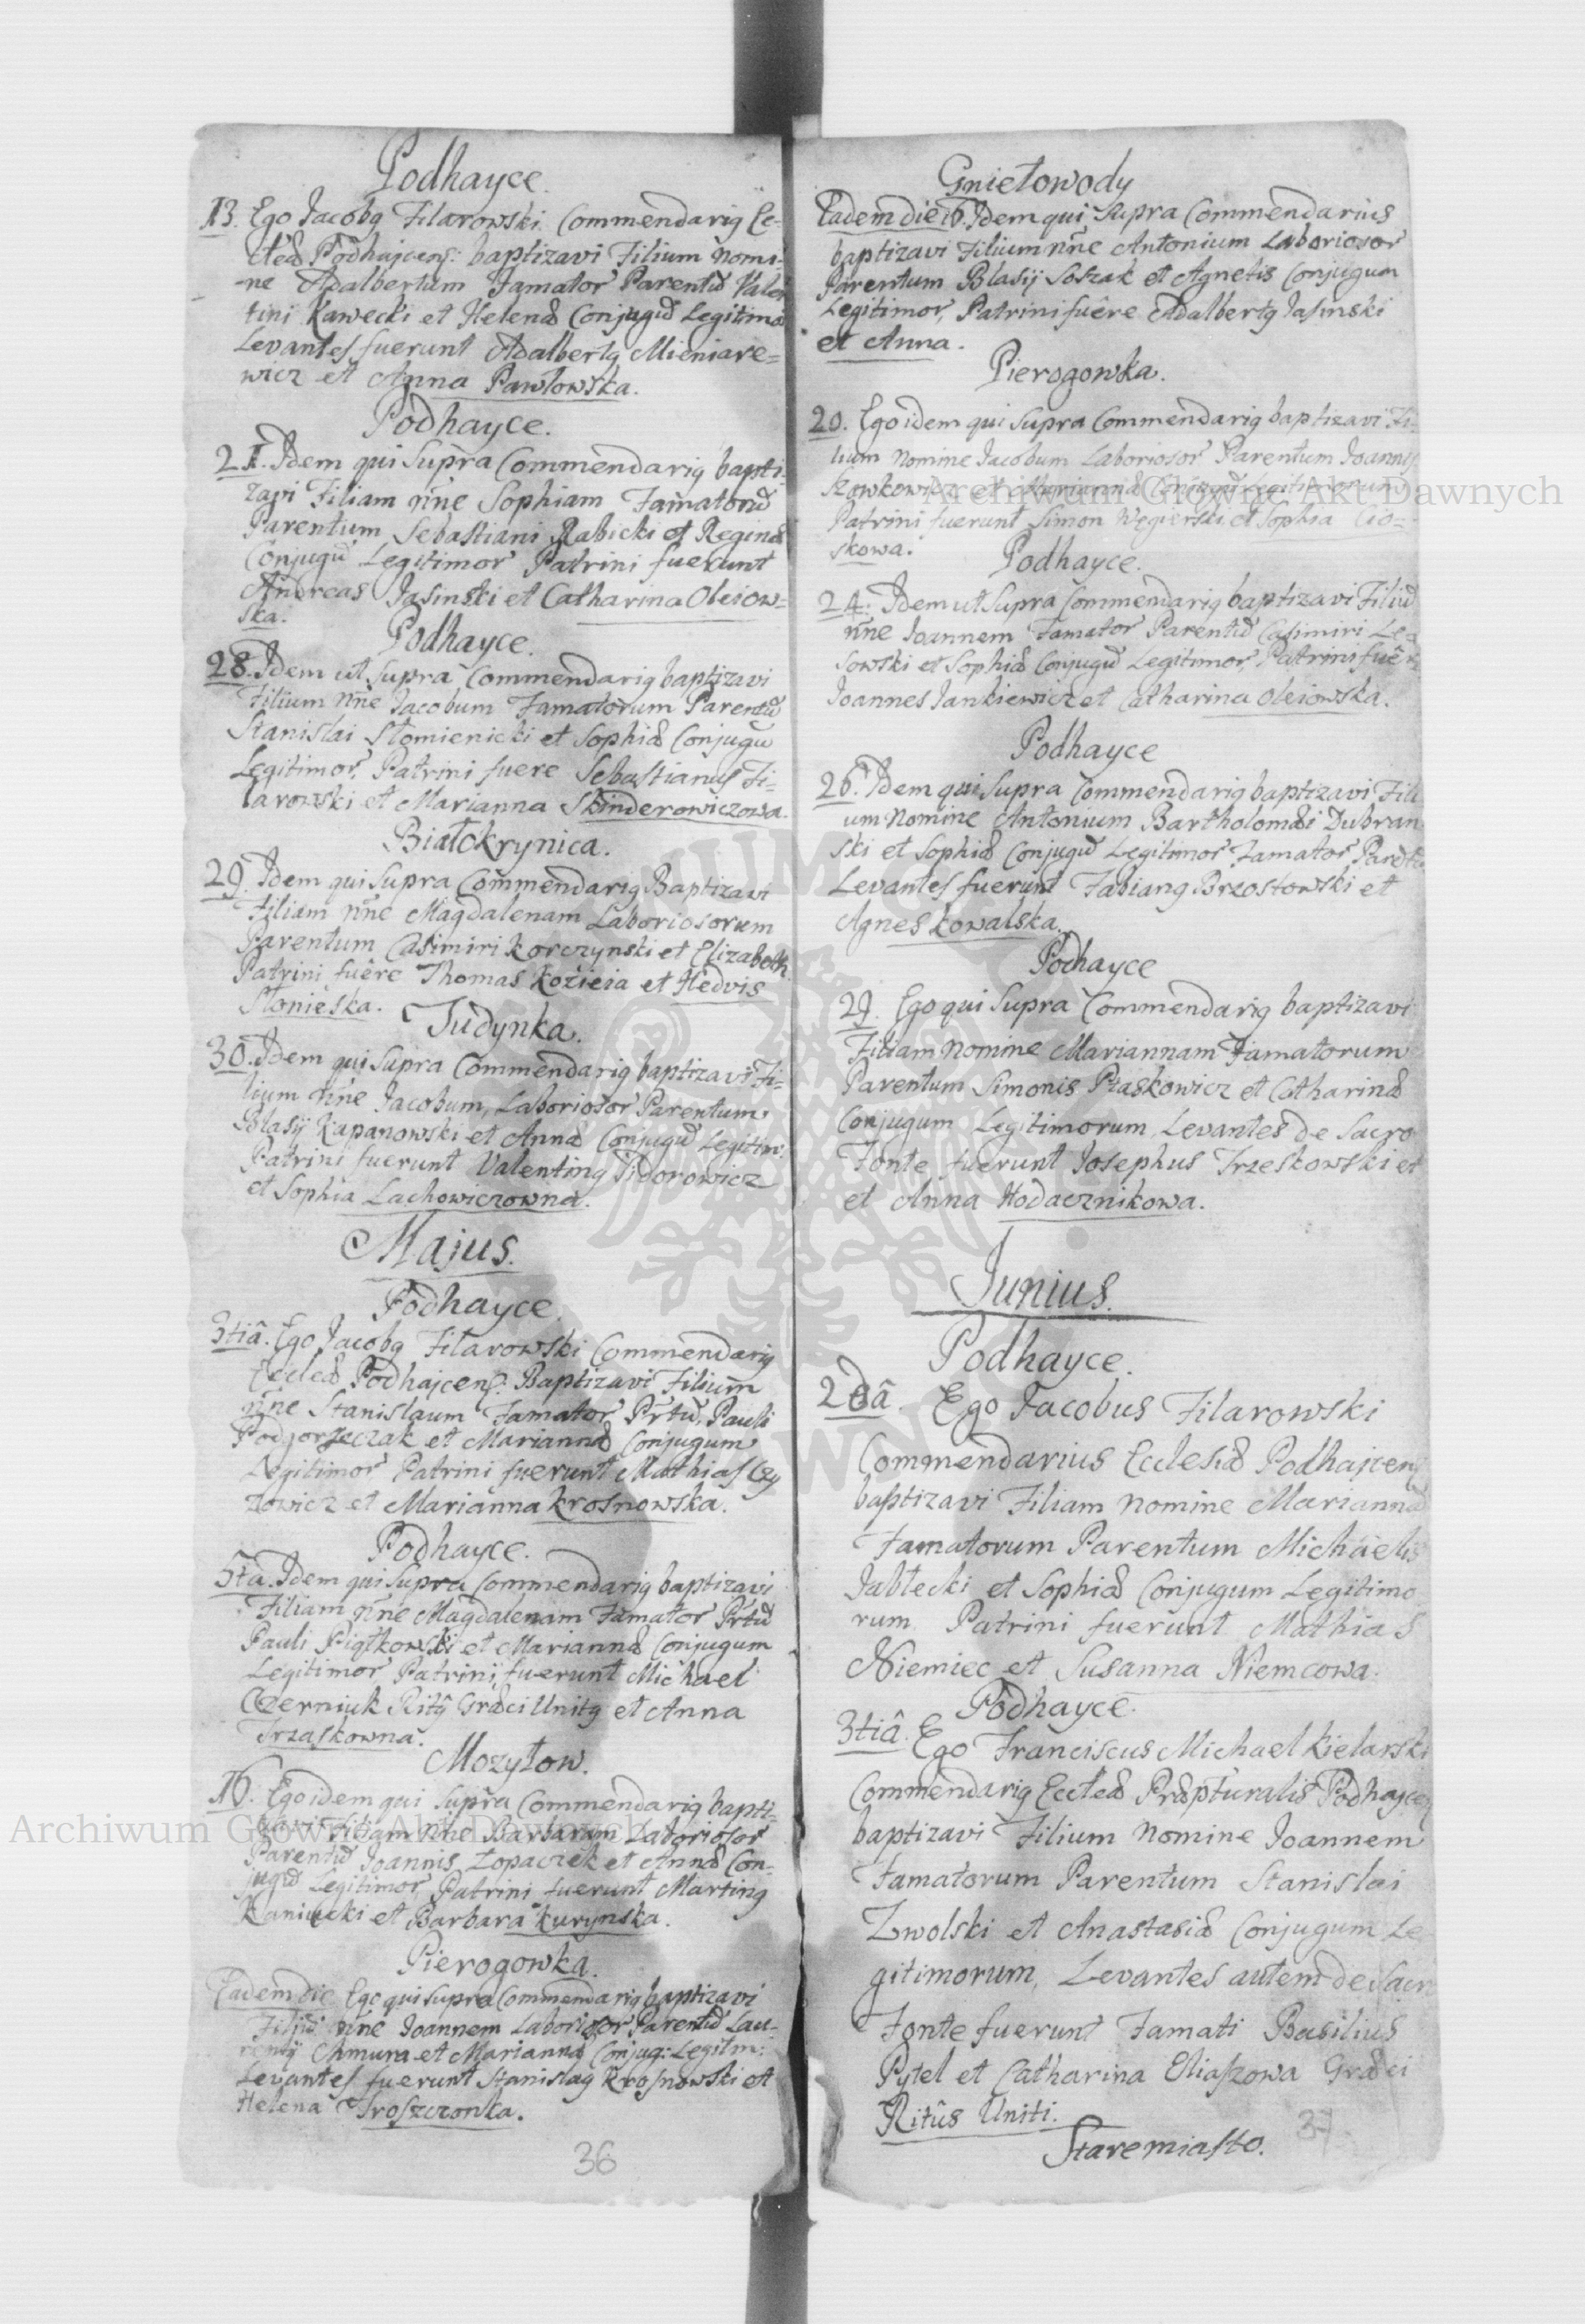 Podhayce.
13. Ego Jacobq Filarowski Commendariq Ec-
cleæ Podhajcens: baptizavi Filium Nomi-
ne Adalbertum Famator Parentū Valen
tini Kawecki et Helenæ Conjugū Legitimo
Levantes fuerunt Adalbertq Mieniare=
wicz et Anna Pawłowska.
Podhayce.
21. Idem qui Supra Commendariq bapti-
zavi Filiam nñe Sophiam Famatorū
Parentum Sebastiani Rabicki et Reginæ
Conjugū Legitimor Patrini fuerunt
Andreas Jasinski et Catharina Oleiow=
ska.
Podhayce.
28. Idem ut Supra Commendariq baptizavi
Filium nñe Jacobum Famatorum Parentū
Stanislai Słomienicki et Sophiæ Conjugū
Legitimor, Patrini fuere Sebastianus Fi=
larowski et Marianna Skinderowiczowa.
Białokrynica.
29. Idem qui Supra Commendariq Baptizavi
Filiam nñe Magdalenam Laboriosorum
Parentum Casimiri Korczynski et Elizabeth
Patrini fuêre Thomas Kozieia et Hedvis
Słonieska.
Judynka.
30. Idem qui Supra Commendariq baptizavi Fi-
lium nñe Jacobum, Laboriosor Parentum
Blasij Rapanowski et Annæ Conjugū Legitim:
Patrini fuerunt Valentinq Sidorowicz
et Sophia Lachowiczowna.
Majus.
Podhayce.
3tiâ. Ego Jacobq Filarowski Commendariq
Eccleæ Podhajcens: Baptizavi Filium
nñe Stanislaum Famator Prtū, Pauli
Podgorzeczak et Mariannæ Conjugum
Legitimor Patrini fuerunt Mathias Czy
zowicz et Marianna Krosnowska.
Podhayce.
5tâ. Idem qui Supra Commendariq baptizavi
Filiam nñe Magdalenam Famator Prtū
Pauli Piątkowski et Mariannæ Conjugum
Legitimor Patrini fuerunt Michael
Czerniuk Ritq Græci Unitq et Anna
Trzaskowna.
Mozyłow.
16. Ego idem qui Supra Commendariq bapti-
zavi Filiam nñe Barbaram Laboriosor
Parentū Joannis Łopaczek et Annæ Con-
jugū Legitimor, Patrini fuerunt Martinq
Kaniucki et Barbara Kurynska.
Pierogowka.
Eadem Die Ego qui Supra Commendariq baptizavi
Filiū nñe Joannem Laboriosor Parentū Lau-
rentij Chmura et Mariannæ Conjug: Legitm:
Levantes fuerunt Stanislaq Krosnowski et
Helena Troszczonka.
36
Gniełowody
Eadem die 16. Idem qui Supra Commendarius
baptizavi Filium nñe Antonium Laboriosor
Parentum Blasij Soszak et Agnetis Conjugum
Legitimor, Patrini fuêre Adalbertq Jasinski
et Anna.
Pierogowka.
20. Ego idem qui Supra Commendariq baptizavi Fi-
lium Nomine Jacobum Laboriosor Parentum Joannis
Szowkowicz et Mariannæ Conjugū Legitimorum
Patrini fuerunt Simon Węgierski et Sophia Cio=
skowa.
Podhayce.
24. Idem ut Supra Commendariq baptizavi Filiū
nñe Joannem Famator Parentū Casimiri Le=
sowski et Sophiæ Conjugū Legitimor, Patrini fuêr
Joannes Jankiewicz et Catharina Oleiowska.
Podhayce
26. Idem qui Supra Commendariq baptizavi Fili
um Nomine Antonium Bartholomæi Dubran
ski et Sophiæ Conjugū Legitimor Famator Parētū
Levantes fuerunt Fabianq Brzostowski et
Agnes Kowalska.
Podhayce
29. Ego qui Supra Commendariq baptizavi
Filiam Nomine Mariannam Famatorum
Parentum Simonis Ptaskowicz et Catharinæ
Conjugum Legitimorum, Levantes de Sacro
Fonte fuerunt Josephus Trzeskowski et
et Anna Hodacznikowa.
Junius.
Podhayce.
2dâ. Ego Jacobus Filarowski
Commendarius Ecclesiæ Podhajcens
baptizavi Filiam Nomine Mariannā
Famatorum Parentum Michaelis
Jabłecki et Sophiæ Conjugum Legitimo
rum Patrini fuerunt Mathias
Niemiec et Susanna Niemcowa.
Podhayce.
3tiâ. Ego Franciscus Michael Kielarski
Commendariq Eccleæ Præpturalis Podhajcen
baptizavi Filium Nomine Joannem
Famatorum Parentum Stanislai
Zwolski et Anastasiæ Conjugum Le
gitimorum, Levantes autem de Sacr
Fonte fuerunt Famati Basilius
Pytel et Catharina Eliaszowa Græci
Ritûs Uniti.
Staremiasto.
37
Archiwum Główne Akt Dawnych
Archiwum Główne Akt Dawnych